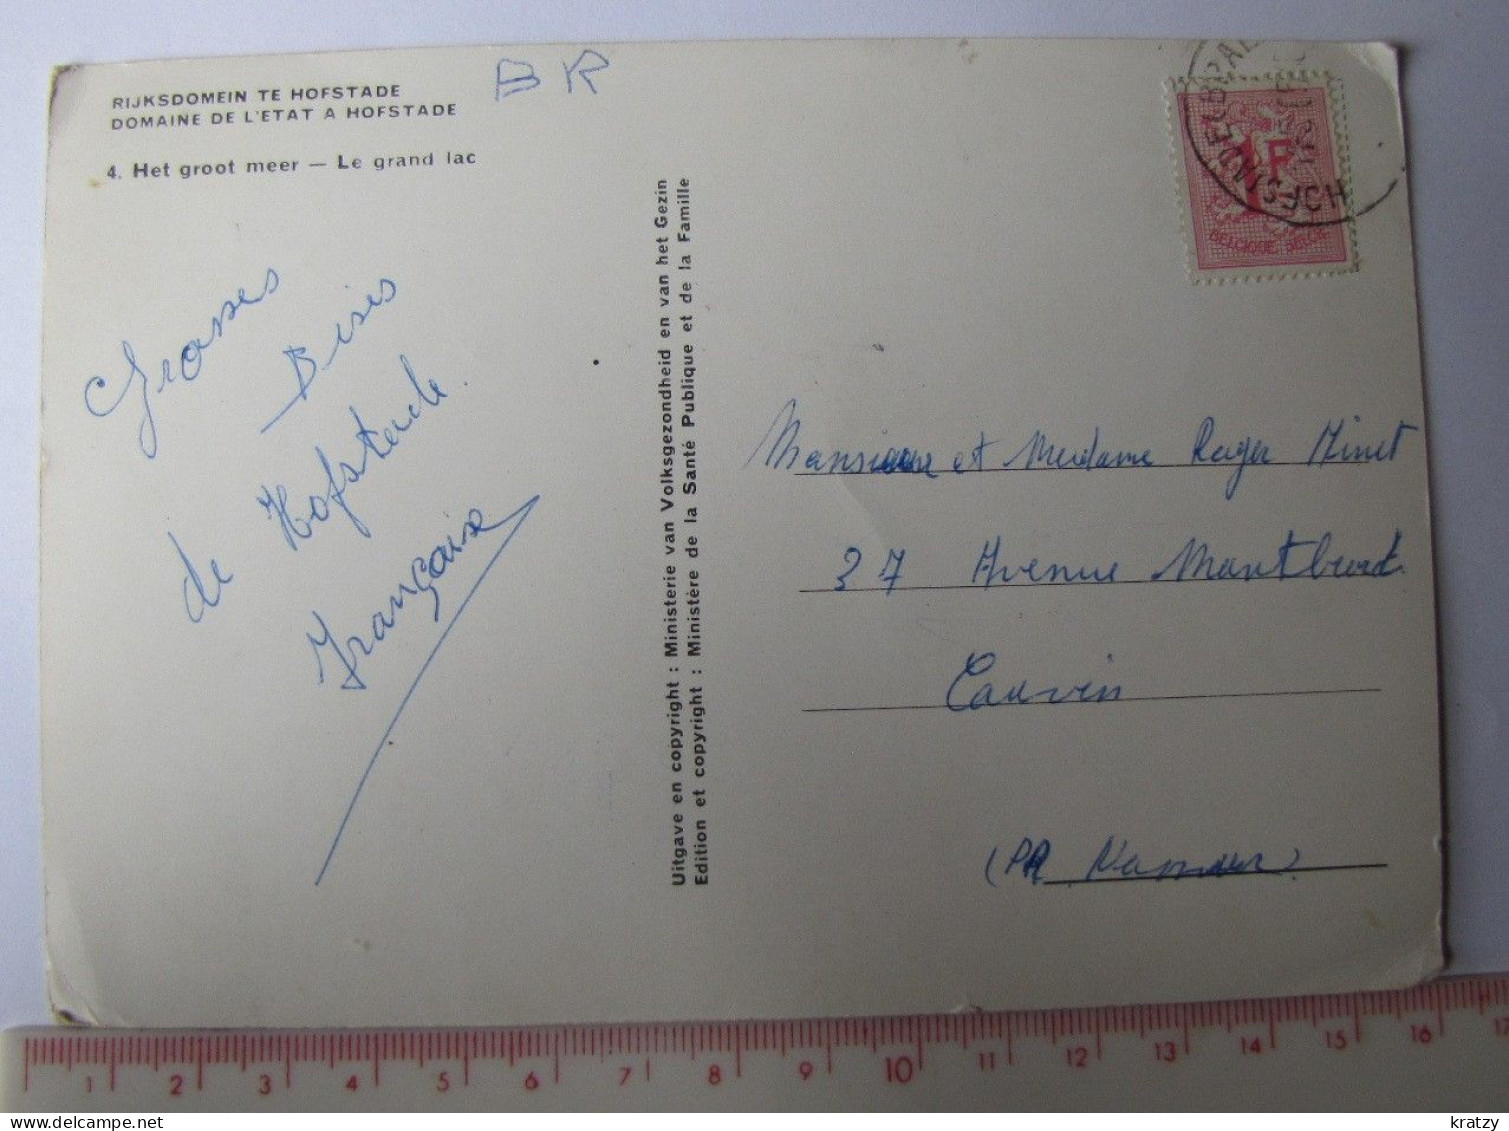 RIJKSDOMEIN TE HOFSTADE
DOMAINE DE L'ETAT A HOFSTADE
4. Het groot meer — Le grand lac
BR
Grosses
Bises
de Hofstade.
Françoise
Uitgave en copyright : Ministerie van Volksgezondheid en van het Gezin
Edition et copyright : Ministère de la Santé Publique et de la Famille
HOFSTADE (BRAB
1F
BELGIQUE BELGIE
Monsieur et Madame Roger Minet
37 Avenue
Couvin
(PR Namur)
1 2 3 4 5 6 7 8 9 10 11 12 13 14 15 16 17
kratzy